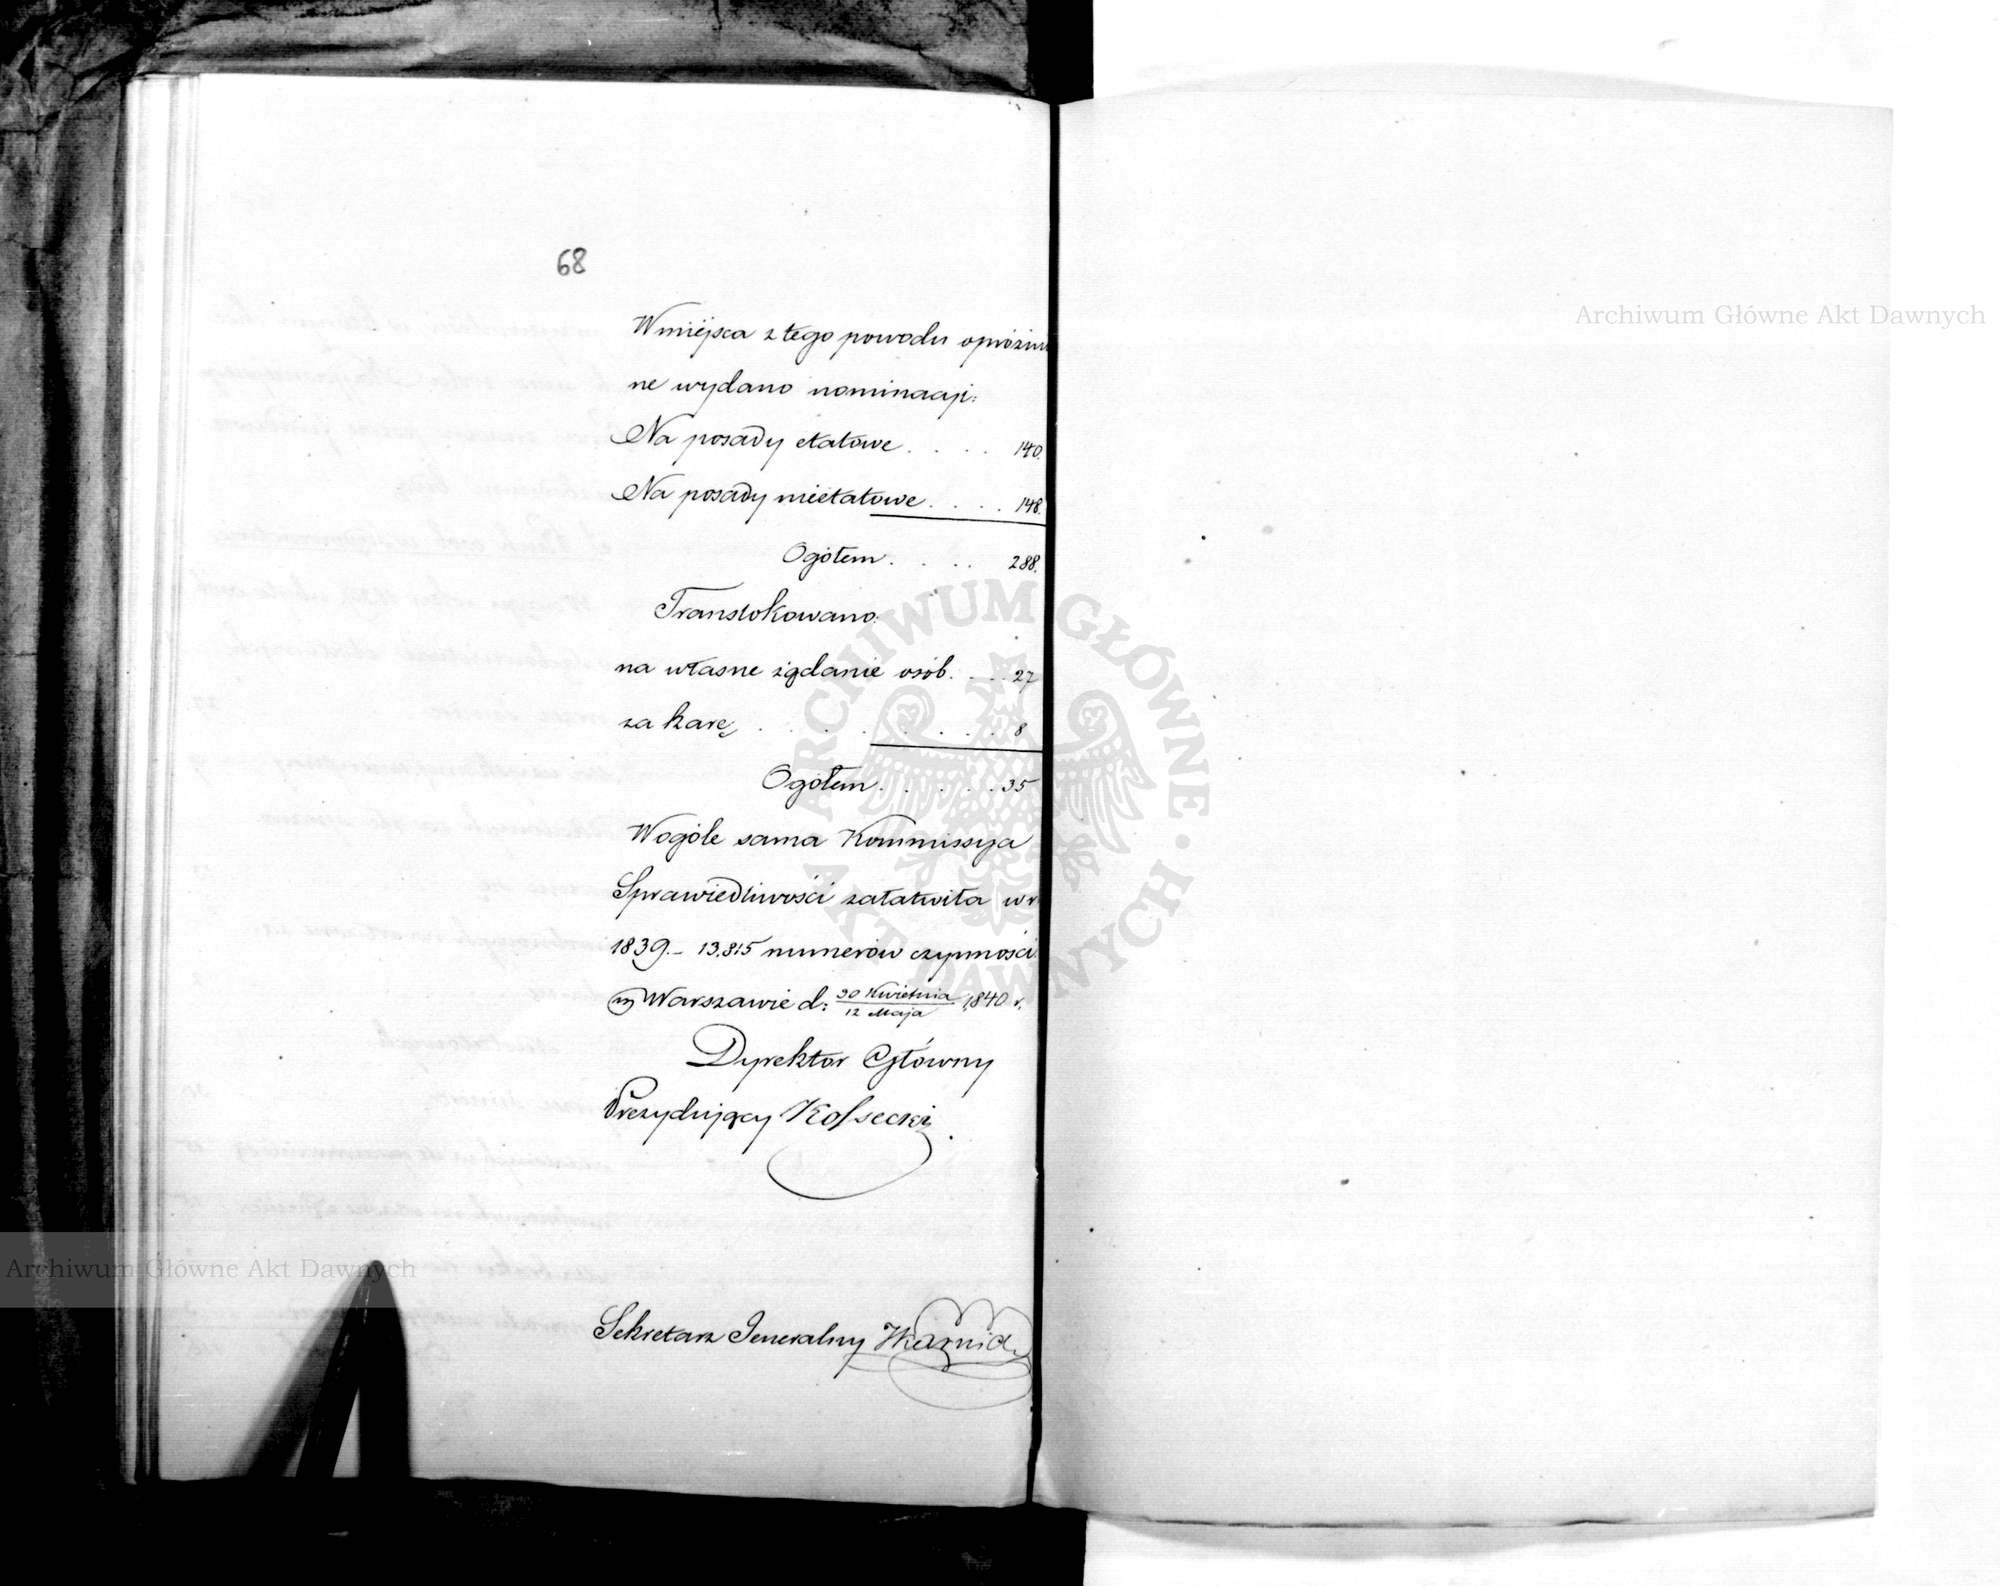 68
W miejsca z tego powodu opróżnio
ne wydano nominacji:
Na posady etatowe . . . . 140.
Na posady nieetatowe . . . . 148.
Ogółem . . . . 288.
Translokowano:
na własne żądanie osób . . . 27
za karę . . . . . . . . 8
Ogółem . . . . . 35
Wogóle sama Kommissyja
Sprawiedliwości załatwiła w r
1839. – 13.815 numerów czynności.
w Warszawie d: 30 Kwietnia / 12 Maja 1840 r.
Dyrektor Główny
Prezydujący Kossecki.
Sekretarz Jeneralny
Archiwum Główne Akt Dawnych
Archiwum Główne Akt Dawnych
ARCHIWUM GŁÓWNE AKT DAWNYCH